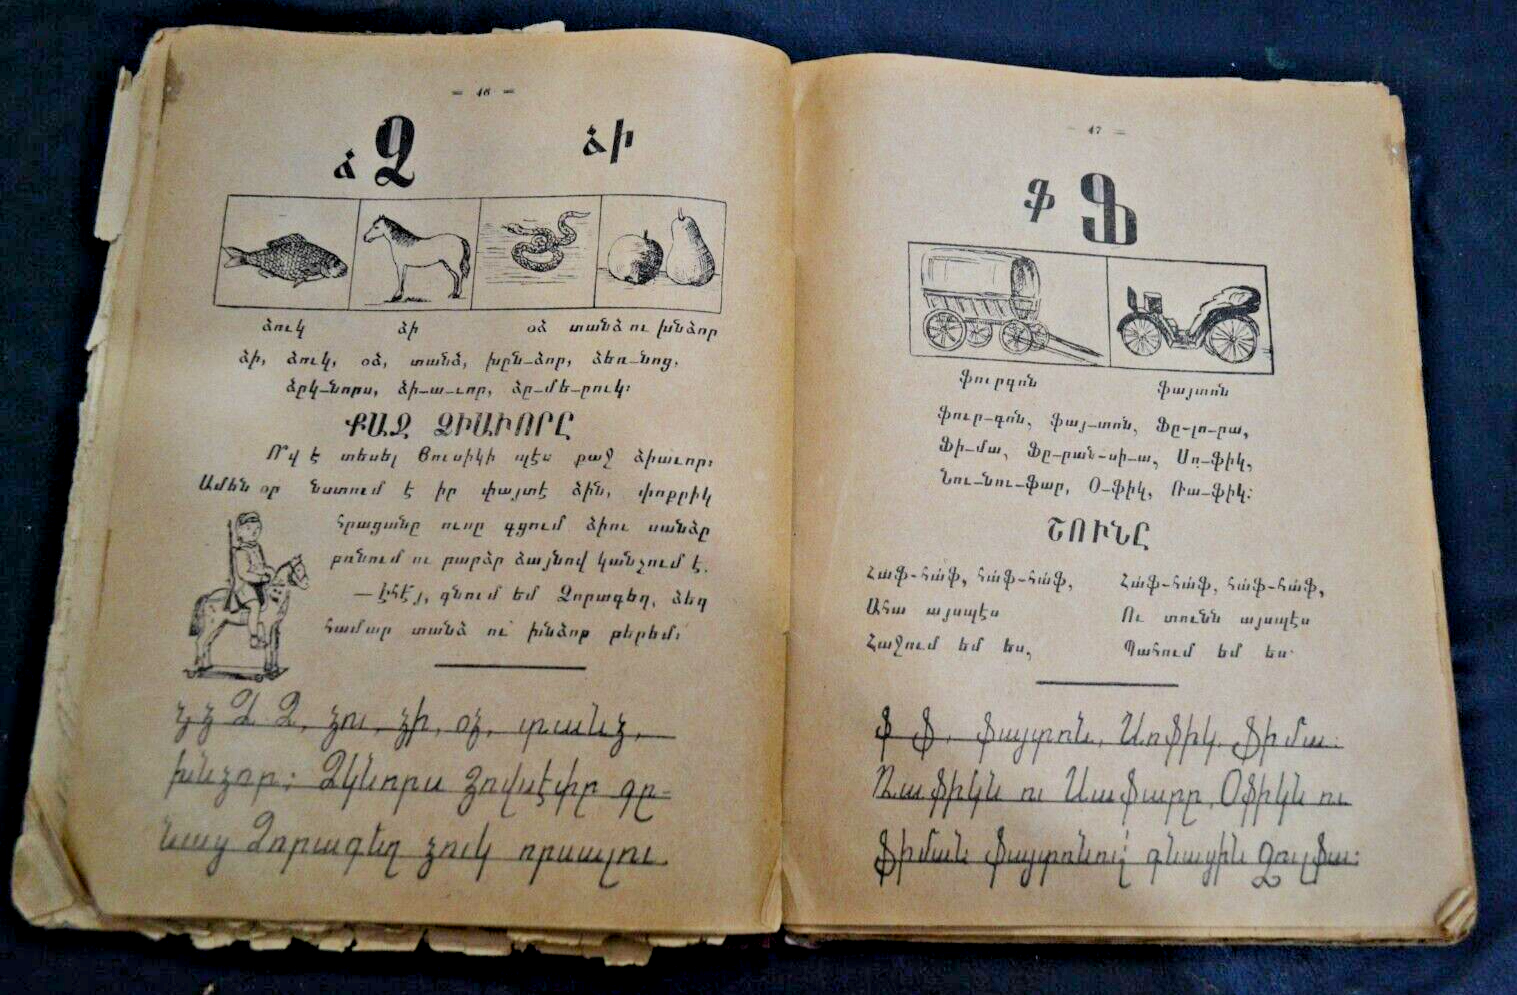 — 46 —
ձ Ձ ձի
ձուկ ձի օձ տանձ ու խնձոր
ձի, ձուկ, օձ, տանձ, խըն-ձոր, ձեռ-նոց,
ձըկ-նորս, ձի-ա-ւոր, ձը-մե-րուկ։
ՔԱՋ ՁԻԱՒՈՐԸ
Ո՞վ է տեսել Ցուսիկի պէս քաջ ձիաւոր։
Ամեն օր նստում է իր փայտէ ձին, փոքրիկ
հրացանը ուսը գցում ձիու սանձը
բռնում ու բարձր ձայնով կանչում է.
—Էհէյ, գնում եմ Ձորագեղ, ձեղ
համար տանձ ու խնձոր բերեմ։
ձ ձ Ձ Ձ, ձու, ձի, օձ, տանձ,
խնձոր։ Ձկնորս Յովսէփը գը-
նաց Ձորագեղ ձուկ որսալու.
47 —
ֆ Ֆ
ֆուրգոն ֆայտոն
ֆուր-գոն, ֆայ-տոն, Ֆը-լո-րա,
Ֆի-մա, Ֆը-րան-սի-ա, Սո-ֆիկ,
Նու-նու-ֆար, Օ-ֆիկ, Ռա-ֆիկ։
ՇՈՒՆԸ
Հաֆ-հաֆ, հաֆ-հաֆ,
Ահա այսպէս
Հաջում եմ ես,
Հաֆ-հաֆ, հաֆ-հաֆ,
Ու տունն այսպէս
Պահում եմ ես.
ֆ Ֆ, ֆայտոն, Սոֆիկ, Ֆիմա։
Ռաֆիկն ու Սաֆարը, Օֆիկն ու
Ֆիման ֆայտոնով գնացին Ջուլֆա։